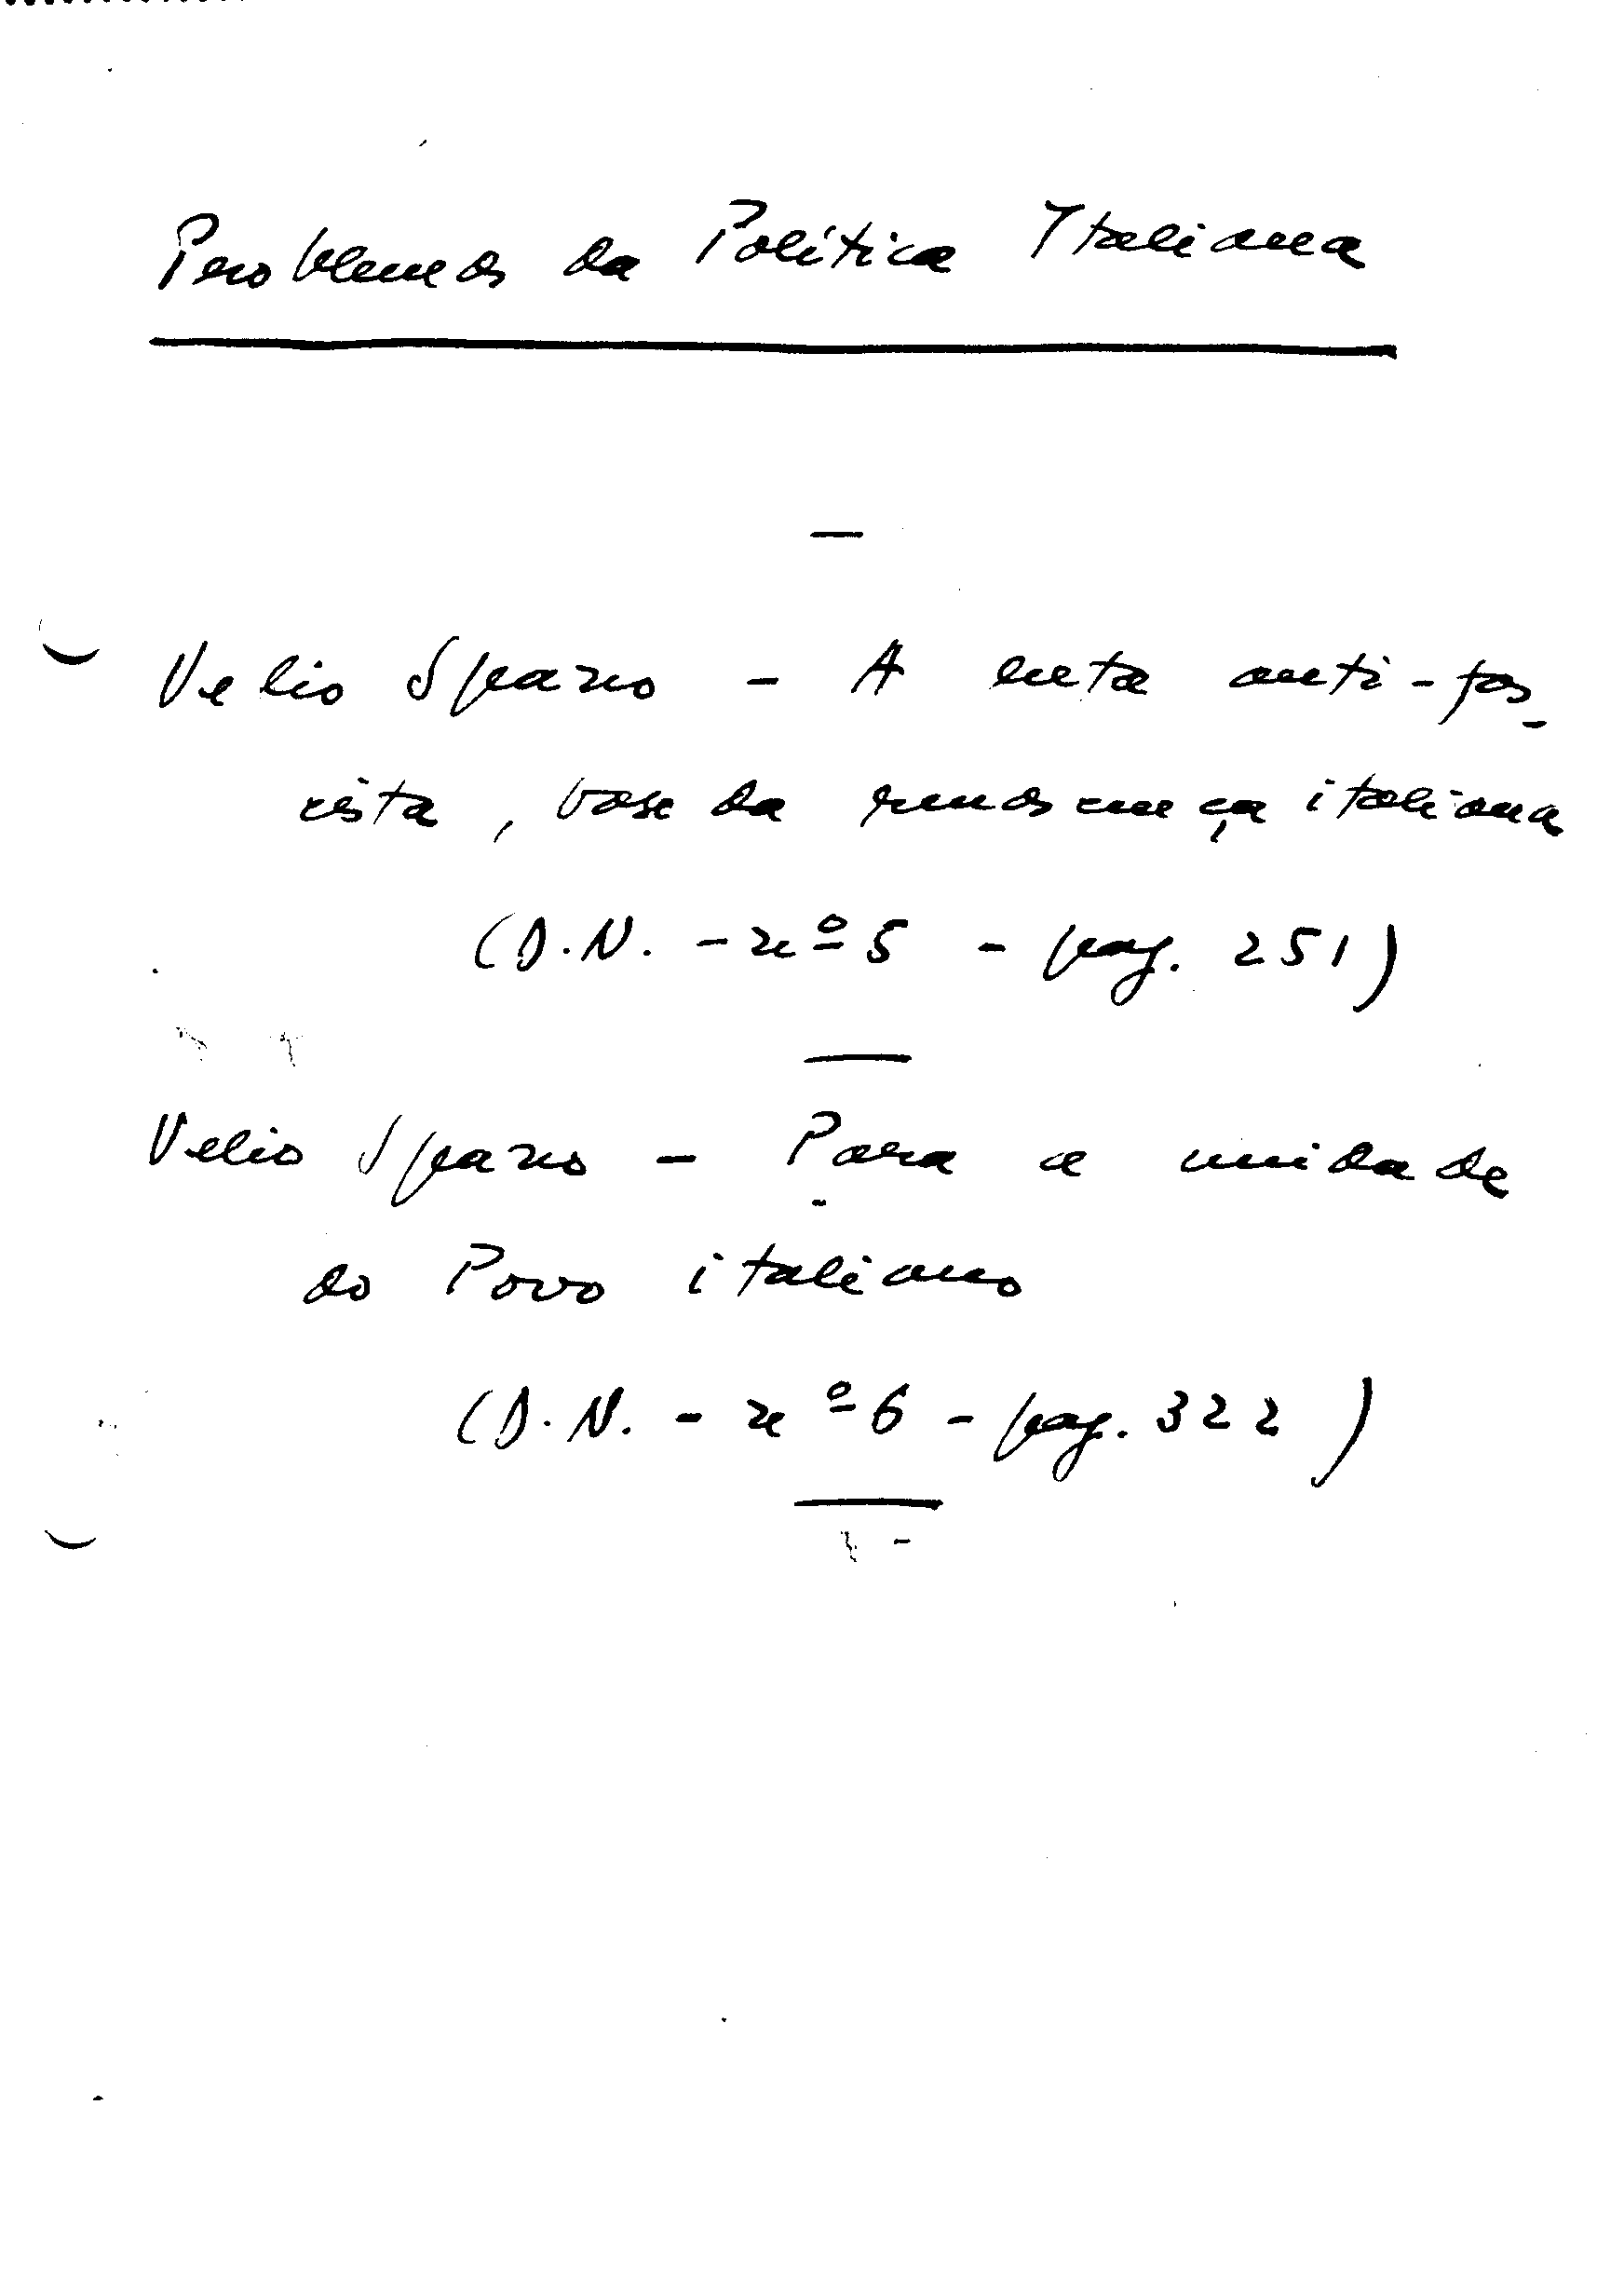 Problemas da Política Italiana
Velio Spano - A luta anti-fas-
cista, base da renascença italiana
(D.N. - nº 5 - pag. 251)
Velio Spano - Para a unidade
do Povo italiano
(D.N. - nº 6 - pag. 322)